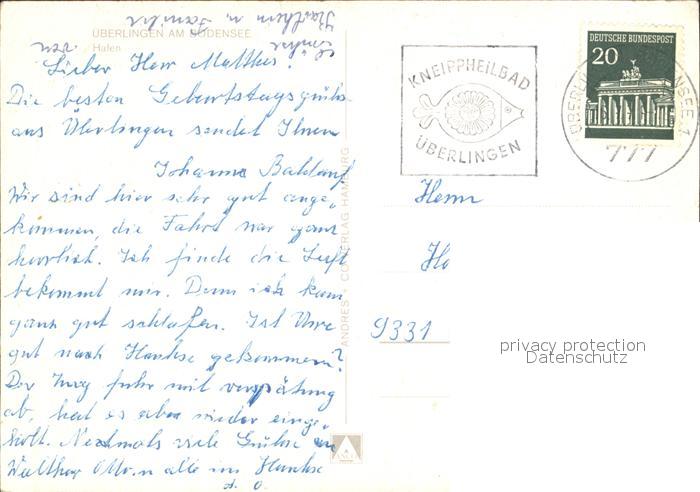 ÜBERLINGEN AM BODENSEE
Hafen
Lieber Herr Matthes!
Die besten Geburtstagsgrüße
aus Überlingen sendet Ihnen
Johanna Baldauf
Wir sind hier sehr gut ange-
kommen, die Fahrt war ganz
herrlich. Ich finde die Luft
bekommt mir. Denn ich kann
ganz gut schlafen. Ist Uwe
gut nach Hause gekommen?
Der Zug fuhr mit verspätung
ab, hat es aber wieder einge-
holt. Nochmals viele Grüße an
Walther Otto u alle im Hause
d. O.
ANDRES + CO VERLAG HAMBURG
KNEIPPHEILBAD
ÜBERLINGEN
DEUTSCHE BUNDESPOST
20
777
Herrn
Ho
9331
privacy protection
Datenschutz